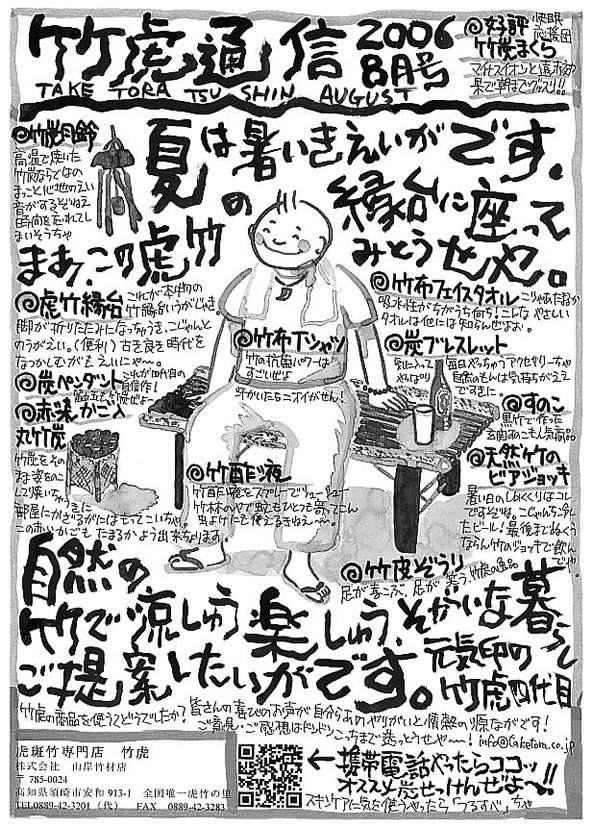 竹虎通信 2006 8月号
TAKE TORA TSU SHIN AUGUST
@好評 快眠応援団
竹炭まくら
マイナスイオンと遠赤効
果で朝までグッスリ!!
@竹炭風鈴
高温で焼いた
竹炭ならではの
まっこと心地のえい
音がするぞねえ
時間を忘れてし
まいそうちゃ
夏は暑いきえいがです。
まあ、この虎竹の縁台に座って
みとうせや。
@虎竹縁台 これが本物の
竹縁台いうがじゃき。
脚が折りたたみになっちゅうき、こじゃんと
のうがえい。(便利) 古き良き時代を
なつかしむがもえいにゃ〜。
@炭ペンダント これが四代目の
自信作!
@竹布Tシャツ
竹の抗菌パワーは
すごいぜよ
汗かいたちニオイがせん!
@竹布フェイスタオル こりゃあたまるか
吸水性がちがうち何ち!こんなやさしい
タオルは他には知らんぜよ。
@炭ブレスレット
気に入って
やっぱり
毎日やっちゅうアクセサリーちゃ
自然のもんは気持ちがええ
ですきに。
@すのこ
黒竹で作った
玄関すのこも人気商品
@赤染かご入
丸竹炭
竹炭をその
まま姿をのこ
して焼いちゅうきに
部屋にかざるがにはもってこいちゃ。
この赤いかごも たまるかよう出来なります
@竹酢液
竹酢液をスプレーでシューシュー
@天然竹の
ビアジョッキ
暑い日のしめくくりはコレ
ですぞね。こじゃんと冷し
たビール! 最後までぬくう
ならん竹のジョッキで飲ん
でや
@竹皮ぞうり
足が喜ぶ、足が笑う、竹虎の逸品
自然の
竹で涼しゅう楽しゅう、そがいな暮らし
ご提案したいがです。元気印の
竹虎四代目
竹虎の商品を使うてどうでしたか? 皆さんの喜びのお声が自分らあのやりがいと情熱の源ながです!
ご意見・ご感想はドンドンこっちまで送っとうせや〜! info@taketora.co.jp
虎斑竹専門店 竹虎
株式会社 山岸竹材店
〒785-0024
高知県須崎市安和 913-1 全国唯一虎竹の里
TEL0889-42-3201 (代) FAX 0889-42-3283
←携帯電話やったらココッ
オススメ炭せっけんぜよ〜!!
スキンケアに気を使うやったら「つるすべ」ちゃ